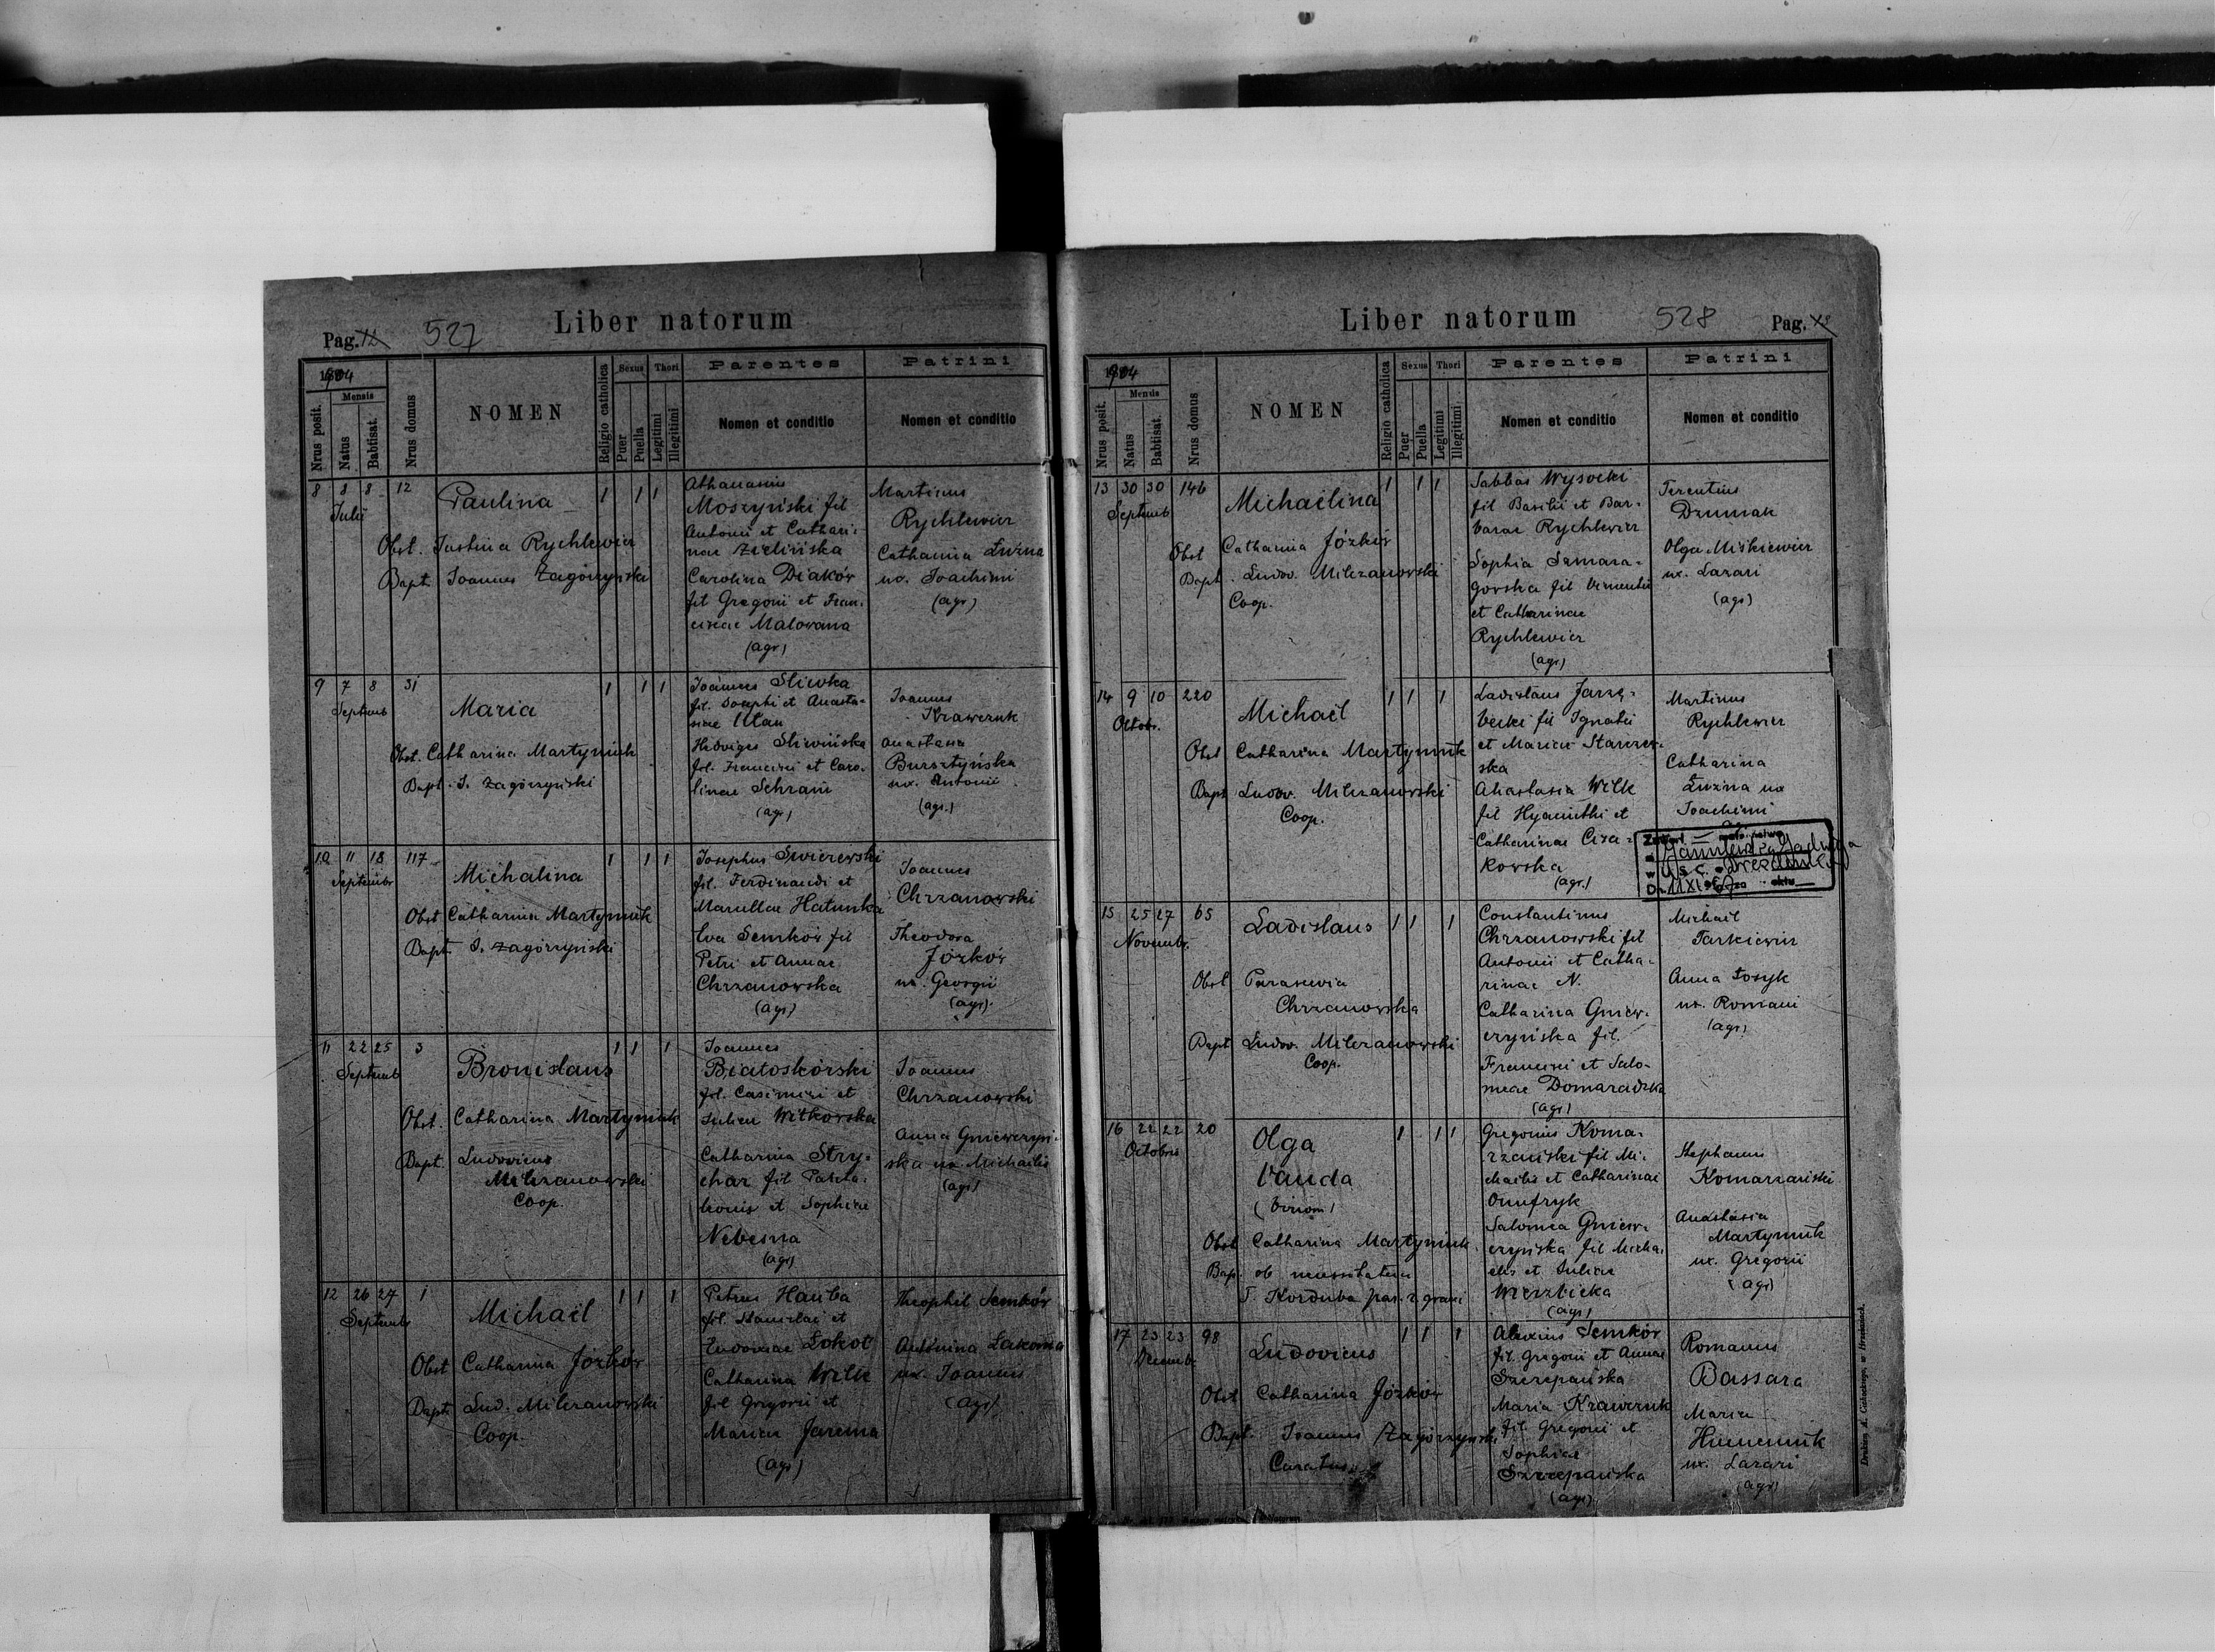 Liber natorum
Pag. 527
1904
Nrus posit.
Mensis
Natus
Babtisat.
Nrus domus
NOMEN
Religio catholica
Sexus
Puer
Puella
Thori
Legitimi
Illegitimi
Parentes
Nomen et conditio
Patrini
Nomen et conditio
8 8 8 12
Julii
Paulina
1 1 1
Obst. Justina Rychlewicz
Bapt. Joannes Zagórzyński
Athanasius
Moszyński fil
Antonii et Cathari-
nae Zielińska
Carolina Diaków
fil Gregorii et Fran-
ciscae Malowana
(agr)
Martinus
Rychlewicz
Catharina Łuzna
ux. Joachimi
(agr)
9 7 8 31
Septemb
Maria
1 1 1
Obst. Catharina Martyniuk
Bapt. J. Zagórzyński
Joannes Sliwka
fil. Josephi et Anasta-
siae Ułan
Hedviges Sliwińska
fil. Francisci et Caro-
linae Schram
(agr)
Joannes
Krawczuk
Anastasia
Bursztyńska
ux. Antonii
(agr.)
10 11 18 117
Septembr
Michalina
1 1 1
Obst Catharina Martyniuk
Bapt J. Zagórzyński
Josephus Swierzewski
fil. Ferdinandi et
Marcellae Hatunka
Eva Semków fil
Petri et Annae
Chrzanowska
(agr)
Joannes
Chrzanowski
Theodora
Józków
ux. Georgii
(agr).
11 22 25 3
Septemb
Bronislaus
1 1 1
Obst. Catharina Martyniuk
Bapt. Ludovicus
Milczanowski
Coop.
Joannes
Białoskórski
fil. Casimiri et
Juliae Witkowska
Catharina Stry-
char fil Panta-
leonis et Sophiae
Nebesna
(agr)
Joannes
Chrzanowski
Anna Gniewczyń-
ska ux Michaelis
(agr)
12 26 27 1
Septembr
Michaël
1 1 1
Obst Catharina Józków
Bapt. Lud. Milczanowski
Coop.
Petrus Hauba
fil. Stanislai et
Eudoxiae Łokot
Catharina Wilk
fil Grigorii et
Mariae Jarema
(agr)
Theophil Semków
Antonina Łakoma
ux. Joannis
(agr)
Liber natorum
528 Pag.
1904
Nrus posit.
Mensis
Natus
Babtisat.
Nrus domus
NOMEN
Religio catholica
Sexus
Puer
Puella
Thori
Legitimi
Illegitimi
Parentes
Nomen et conditio
Patrini
Nomen et conditio
13 30 30 146
Septemb
Michaëlina
1 1 1
Obst Catharina Józków
Bapt. Ludov. Milczanowski
Coop.
Sabbas Wysocki
fil Basilii et Bar-
barae Rychlewicz
Sophia Samara-
gorska fil Vincentii
et Catharinae
Rychlewicz
(agr)
Terentius
Dzumak
Olga Miśkiewicz
ux. Lazari
(agr)
14 9 10 220
Octobr.
Michaël
1 1 1
Obst Catharina Martyniuk
Bapt Ludov. Milczanowski
Coop.
Ladislaus Jarzę-
becki fil Ignatii
et Mariae Starzew-
ska
Anastasia Wilk
fil Hyacinthi et
Catharinae Cisa-
kowska
(agr.)
Martinus
Rychlewicz
Catharina
Łuzna ux
Joachimi
15 25 27 65
Novembr.
Ladislaus
1 1 1
Obst Parascevia
Chrzanowska
Bapt Ludov. Milczanowski
Coop.
Constantinus
Chrzanowski fil
Antonii et Catha-
rinae N.
Catharina Gniew-
czyńska fil.
Francisci et Salo-
meae Domaradzka
(agr)
Michaël
Tarkiewicz
Anna Łosyk
ux. Romani
(agr)
16 22 22 20
Octobris
Olga
Vanda
(binom)
1 1 1
Obst Catharina Martyniuk
Bap. ob necessitatem
Gregorius Koma-
rzański fil Mi-
chaelis et Catharinae
Onufryk
Salomea Gniew-
czyńska fil Micha-
elis et Juliae
Wierzbicka
(agr)
Stephanus
Komarzański
Anastasia
Martyniuk
ux. Gregorii
(agr)
17 23 23 98
Decemb
Ludovicus
1 1 1
Obst Catharina Józków
Bapt. Joannes Zagórzyński
Curatus
Alexius Semków
fil. Gregorii et Annae
Szczepańska
Maria Krawczuk
fil. Gregorii et
Sophiae
Szczepańska
(agr)
Romanus
Bassara
Maria
Humeniuk
ux. Lazari
(agr)